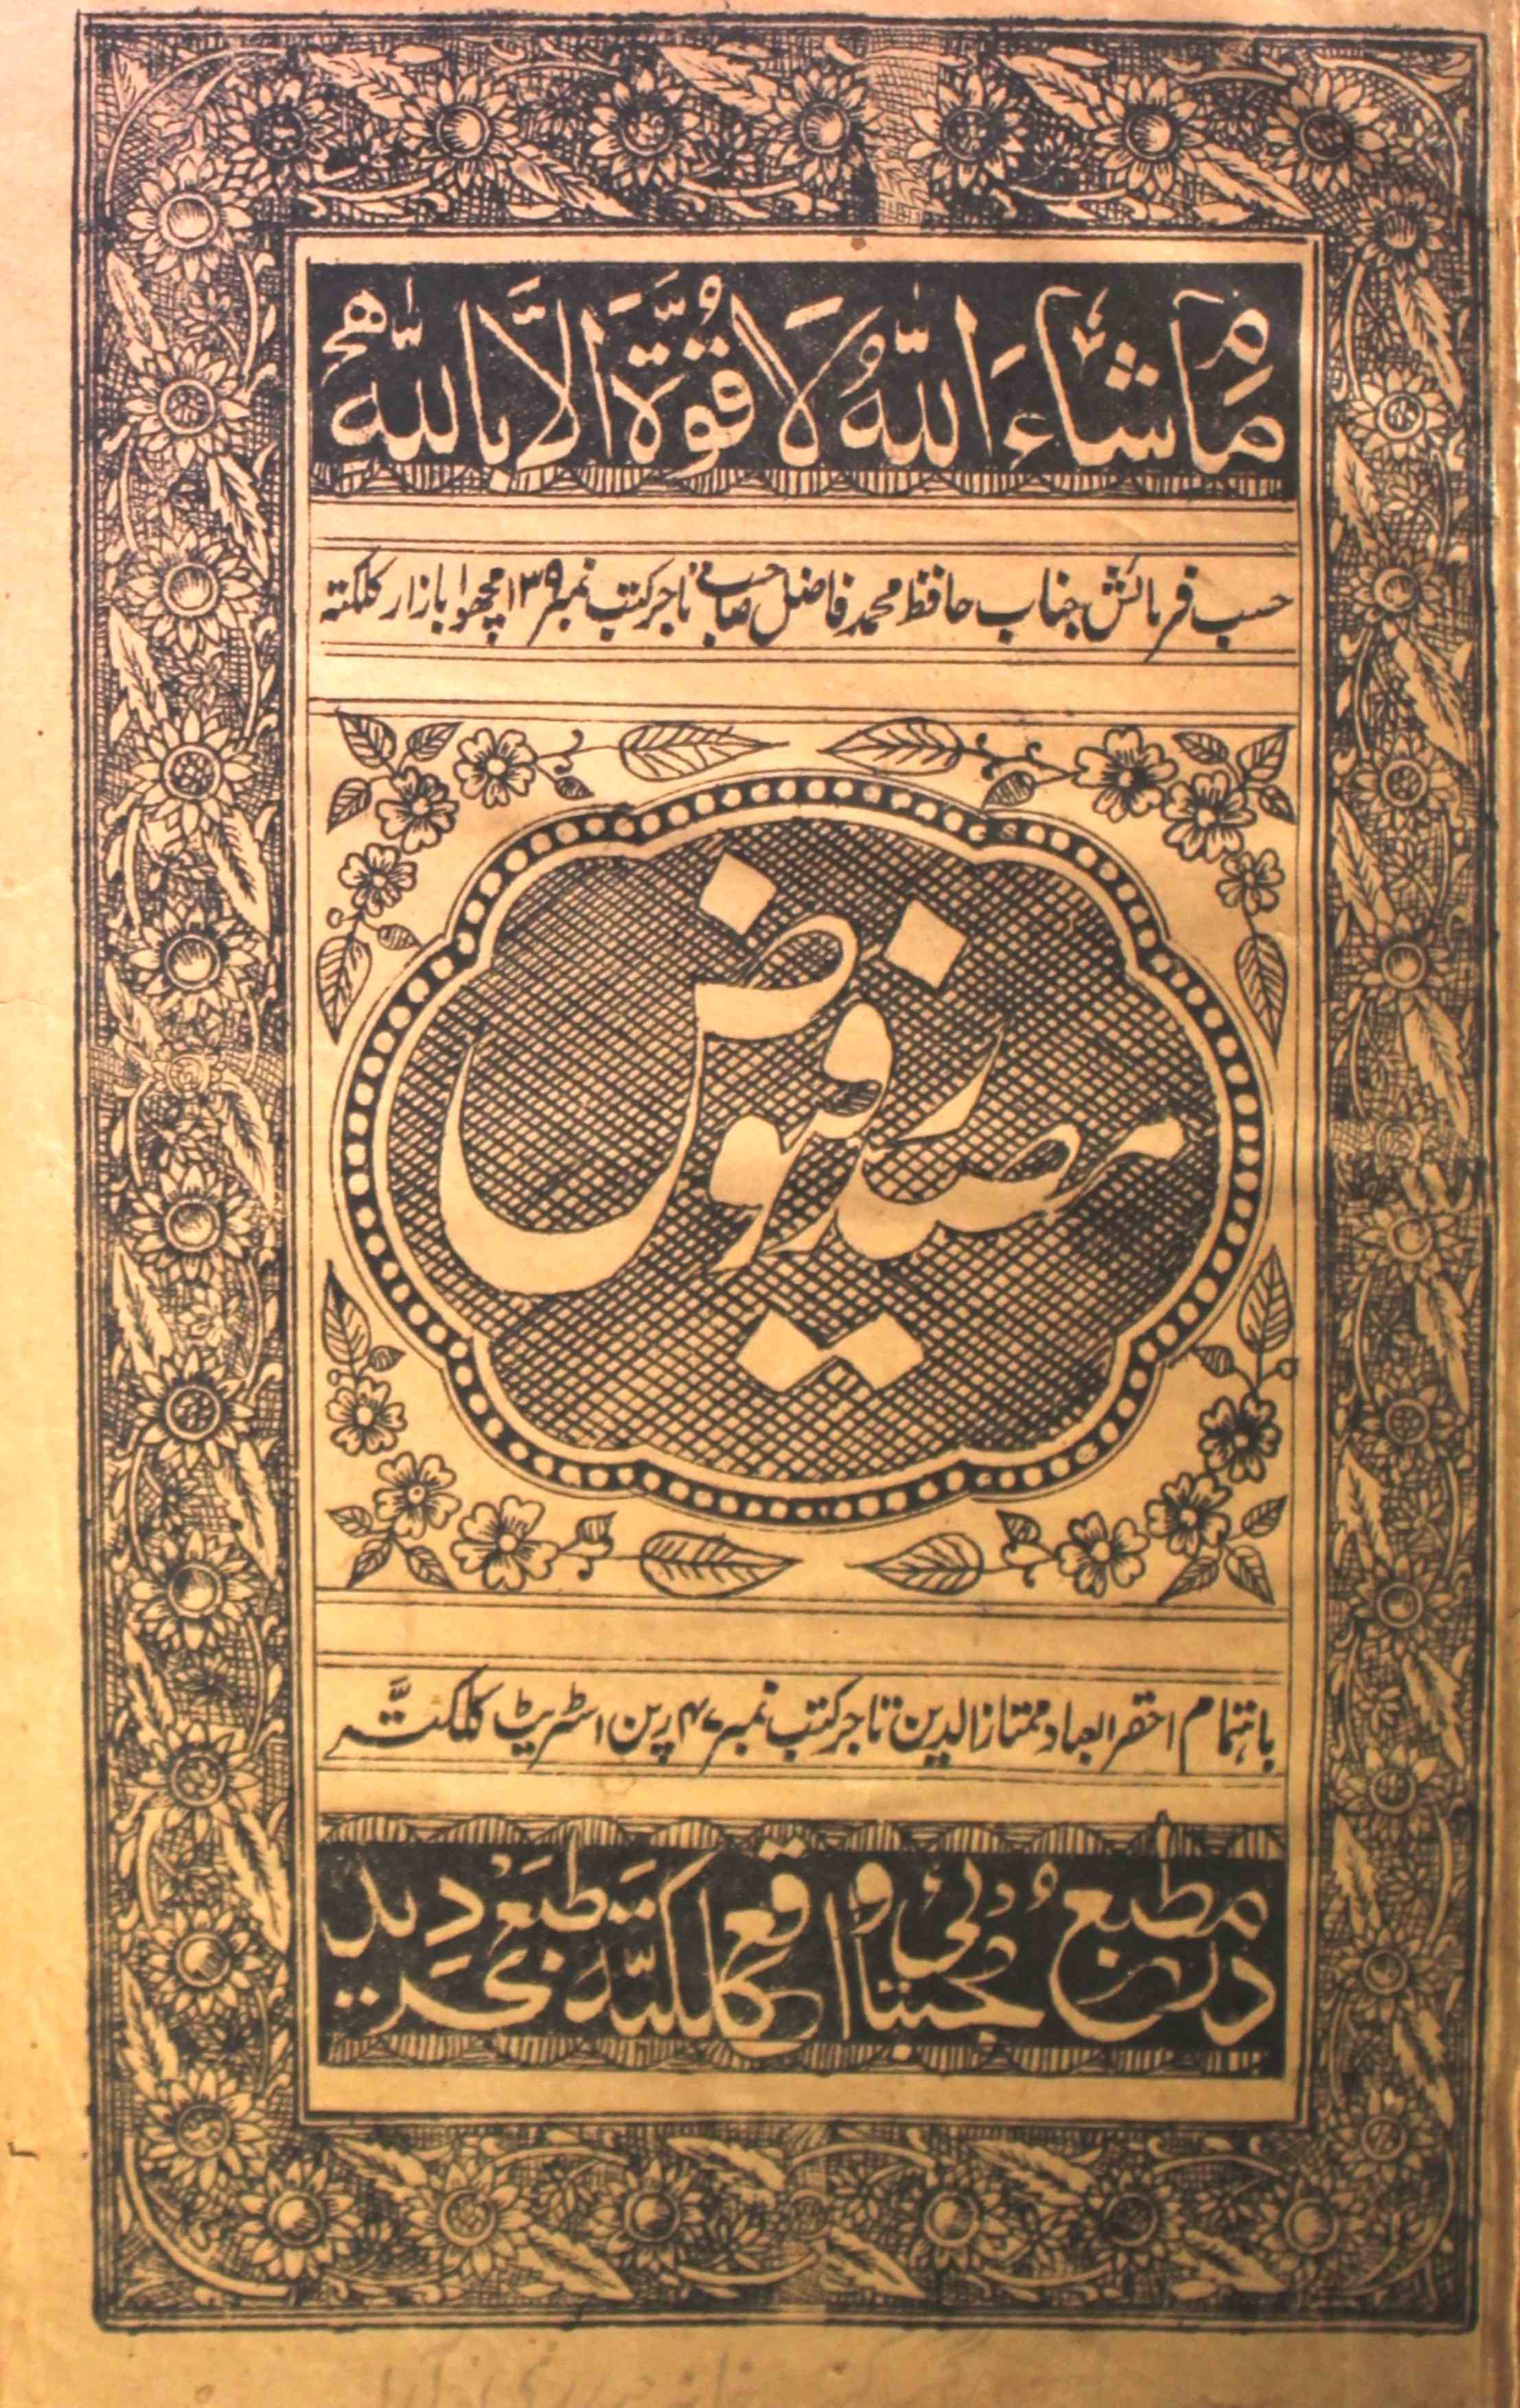 مَا شَاءَ اللّٰهُ لَا قُوَّةَ اِلَّا بِاللّٰهِ
حسب فرمائش جناب حافظ محمد فاضل صاحب تاجر کتب نمبر ۱۳۹ مچھوا بازار کلکتہ
مصدر فیوض
باہتمام احقر العباد ممتاز الدین تاجر کتب نمبر ۴۷ رپن اسٹریٹ کلکتہ
در مطبع مجتبائی واقع کلکتہ طبع گردید